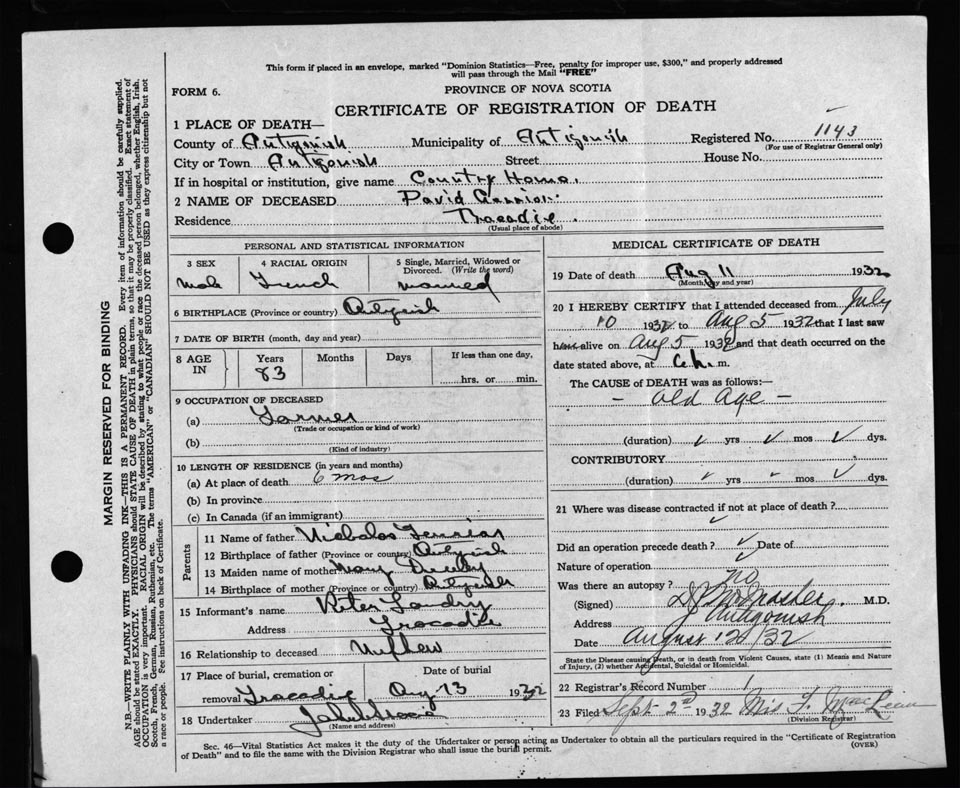 This form if placed in an envelope, marked "Dominion Statistics—Free, penalty for improper use, $300," and properly addressed
will pass through the Mail "FREE"
FORM 6.
PROVINCE OF NOVA SCOTIA
CERTIFICATE OF REGISTRATION OF DEATH
1 PLACE OF DEATH—
County of Antigonish Municipality of Antigonish Registered No. 1143
(For use of Registrar General only)
City or Town Antigonish Street House No.
If in hospital or institution, give name County Home.
2 NAME OF DECEASED David
Residence Tracadie.
(Usual place of abode)
PERSONAL AND STATISTICAL INFORMATION
3 SEX 4 RACIAL ORIGIN 5 Single, Married, Widowed or
Divorced. (Write the word)
Male French Married
6 BIRTHPLACE (Province or country) Antigonish
7 DATE OF BIRTH (month, day and year)
8 AGE IN Years Months Days If less than one day,
83 hrs. or min.
9 OCCUPATION OF DECEASED
(a) Farmer
(Trade or occupation or kind of work)
(b)
(Kind of industry)
10 LENGTH OF RESIDENCE (in years and months)
(a) At place of death 6 mos
(b) In province
(c) In Canada (if an immigrant)
Parents
11 Name of father Nicholas
12 Birthplace of father (Province or country) Antigonish
13 Maiden name of mother Mary
14 Birthplace of mother (Province or country) Antigonish
15 Informant's name Peter Landry
Address Tracadie
16 Relationship to deceased Nephew
17 Place of burial, cremation or Date of burial
removal Tracadie Aug 13 1932
18 Undertaker
(Name and address)
MEDICAL CERTIFICATE OF DEATH
19 Date of death Aug 11 1932
(Month, day and year)
20 I HEREBY CERTIFY that I attended deceased from July
10 1932 to Aug 5 1932 that I last saw
him alive on Aug 5 1932 and that death occurred on the
date stated above, at m.
The CAUSE OF DEATH was as follows:—
– Old Age –
(duration) ✓ yrs ✓ mos ✓ dys.
CONTRIBUTORY
(duration) ✓ yrs ✓ mos ✓ dys.
21 Where was disease contracted if not at place of death?
✓
Did an operation precede death? ✓ Date of
Nature of operation ✓
Was there an autopsy? no
(Signed) M.D.
Address Antigonish
Date August 12/32
State the Disease causing Death, or in death from Violent Causes, state (1) Means and Nature
of Injury, (2) whether Accidental, Suicidal or Homicidal.
22 Registrar's Record Number 1
23 Filed Sept 2nd 1932 Miss F. MacLean
(Division Registrar)
Sec. 46—Vital Statistics Act makes it the duty of the Undertaker or person acting as Undertaker to obtain all the particulars required in the "Certificate of Registration
of Death" and to file the same with the Division Registrar who shall issue the burial permit. (OVER)
MARGIN RESERVED FOR BINDING
N.B.—WRITE PLAINLY WITH UNFADING INK—THIS IS A PERMANENT RECORD. Every item of information should be carefully supplied.
AGE should be stated EXACTLY. PHYSICIANS should STATE CAUSE OF DEATH in plain terms, so that it may be properly classified. Exact statement of
OCCUPATION is very important. RACIAL ORIGIN will be described by stating to what people or race the deceased person belonged, whether English, Irish,
Scotch, French, German, Russian, Ruthenian, etc. The terms "AMERICAN" or "CANADIAN" SHOULD NOT BE USED as they express citizenship but not
a race or people. See instructions on back of Certificate.